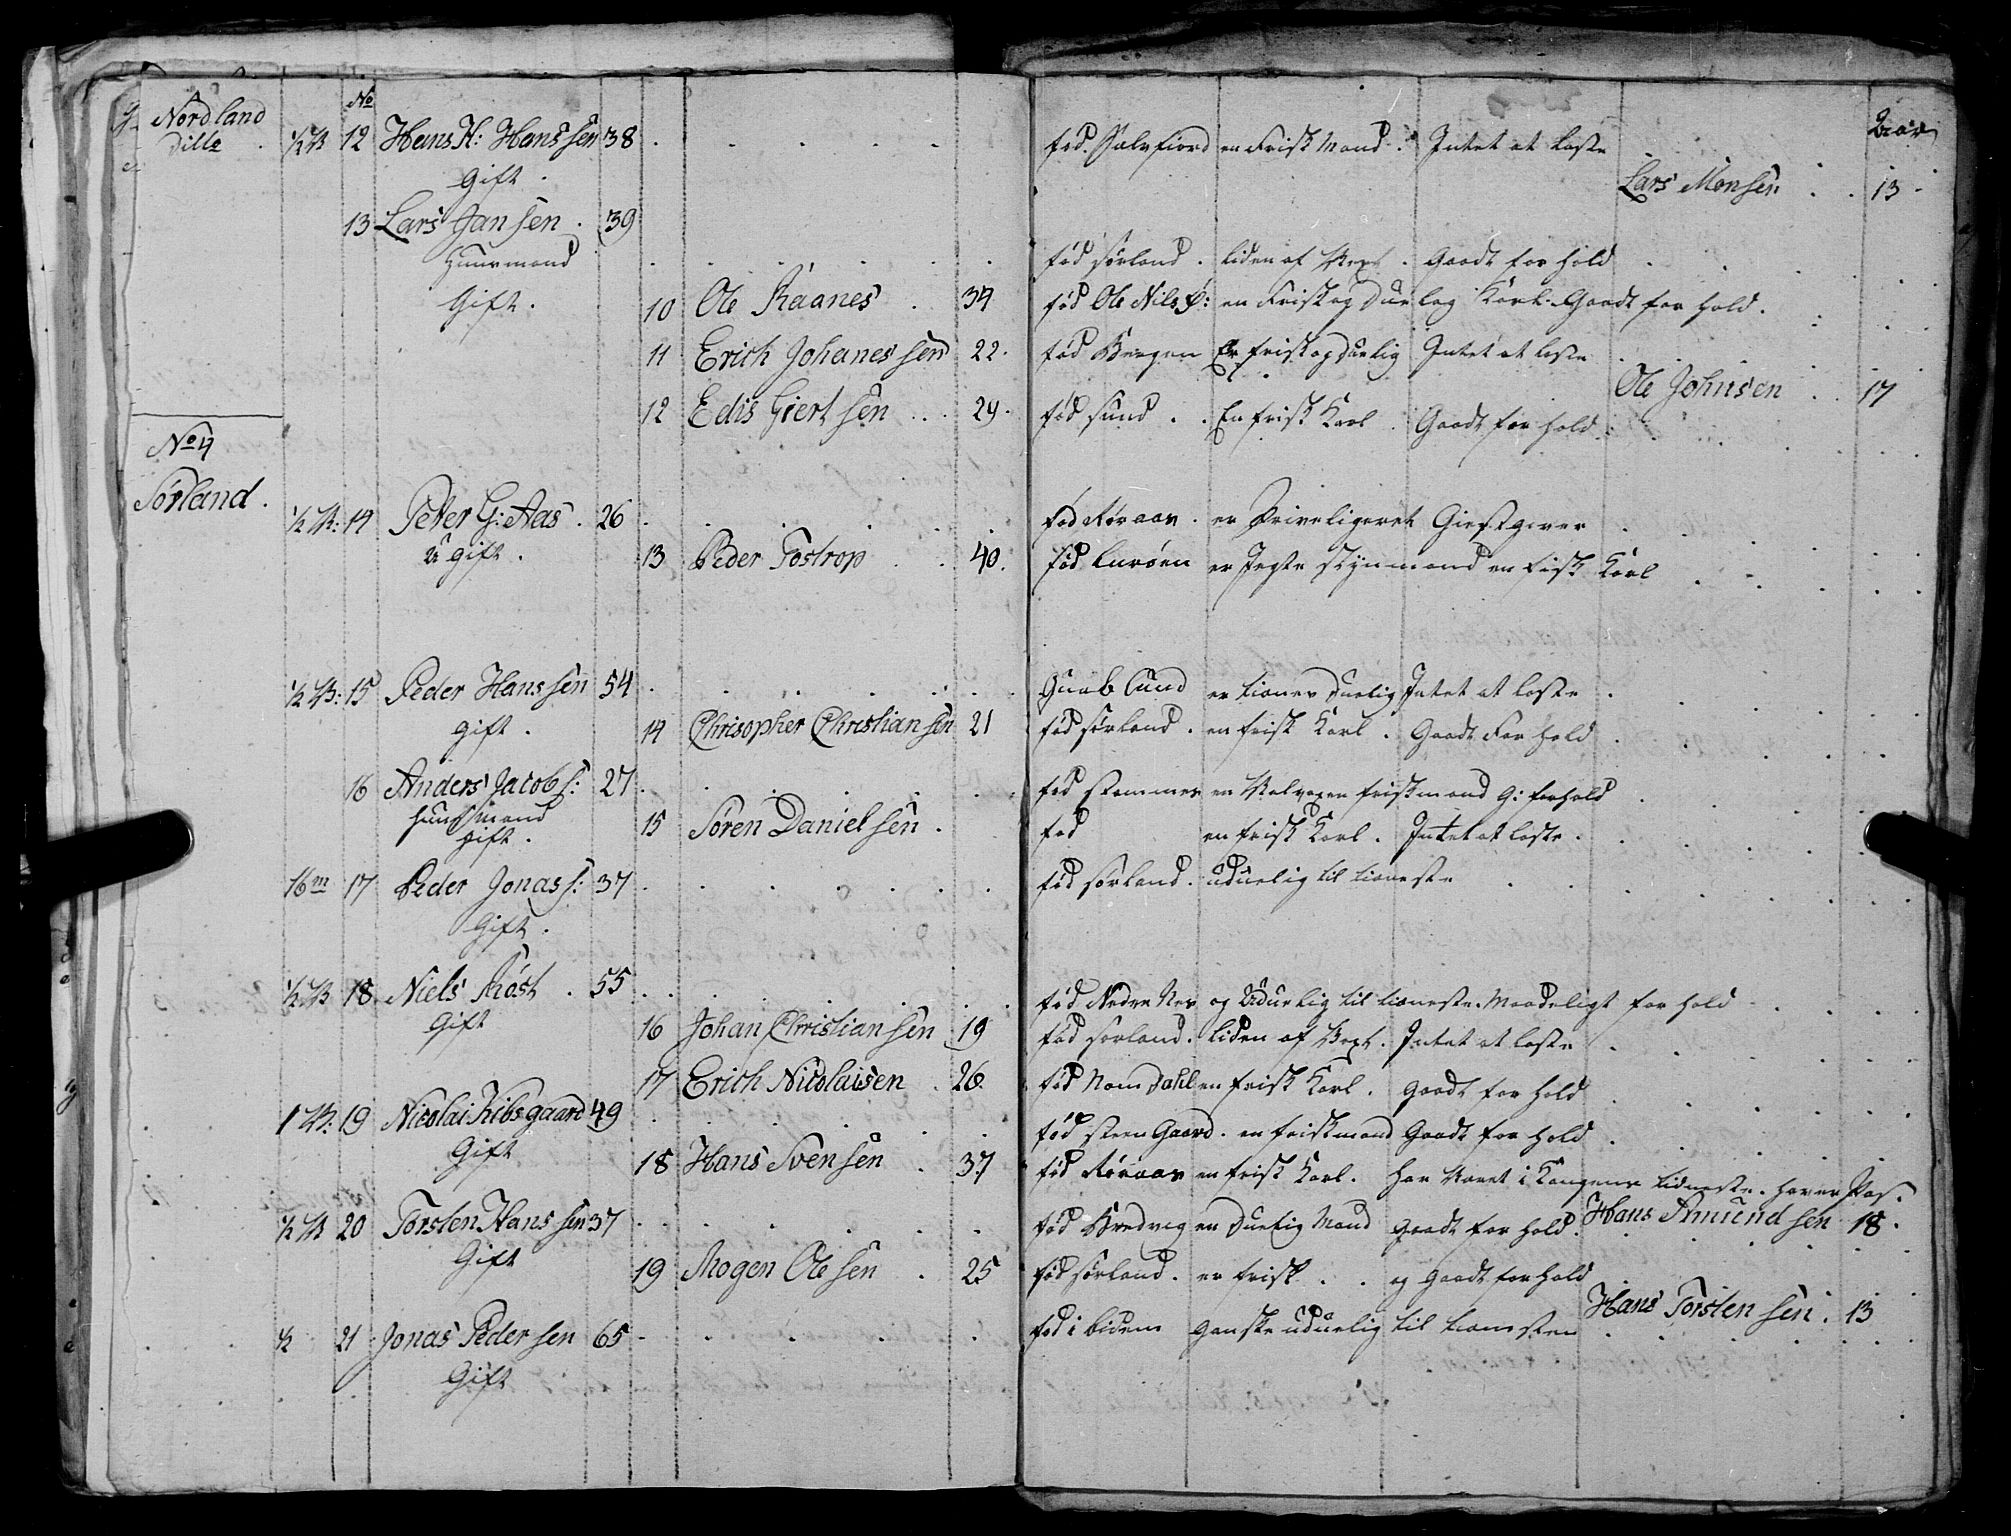 No
Nordland
Dito . ½ W 12 Hans H: Hanssen 38 fød. Salvfiord en Frisk Mand . Intet at laste
Gift . Lars Monsen . . 13
13 Lars Jansen . 39
Huusmand fød Sørland . liden af Vext . Gaadt for hold
Gift . 10 Ole Raanes . 34 fød Ole Nils en Frisk og Duelag Karl . Gaadt for hold .
11 Erich Johanessen 22 . fød Bergen Er frisk og duelig Intet at laste
Ole Johnsen . . 17
12 Edis Giertsen . . 29 . fød Sund . . En frisk Karl . Gaadt for hold .
No 4
Sørland .
½ W: 14 Peter G: Aas . 26 fød Røraas . er Priveligeret Giestgiver
Ugift . 13 Peder Tostrop . . 40 . fød Lurøen er Jegte Skynmand en Fisk Karl
½ W: 15 Peder Hanssen 54 er tienes duelig Intet at laste .
gift . 14 Chrisopher Christiansen 21 fød Sørland . en frisk Karl . Gaadt For hold
16 Anders Jacobs: 27 fød en Velvoxen friskmand G: forhold
Huusmand 15 Søren Danielsen . fød en frisk Karl . Intet at laste .
Gift .
16 m 17 Peder Jonas s: 37 fød Sørland . uduelig til tieneste
Gift .
½ W 18 Niels Røst . 55 fød Nedre Nes og Uduelig til tieneste . Maadeligt for hold
Gift 16 Johan Christiansen 19 fød Sørland . liden af Vext . Intet at laste
17 Erich Nicolaisen . 26 fød Nomdahl en frisk Karl . gaadt for hold
1 W: 19 Nicolai Ribsgaard 49 fød Steen Gaard . en friskmand Gaadt for hold .
Gift 18 Hans Svensen . 37 fød Røraas en frisk Karl . har Været i Kongens tieneste . haver Pas .
½ W 20 Torsten Hanssen 37 fød en Duelig Mand Gaadt for hold . Hans Amundsen 18 .
Gift 19 Mogen Olesen . 25 fød Sørland . er frisk . . og Gaadt forhold
Hans Torstensen . 13
½ 21 Jonas Pedersen 65 fød i bidem Ganske uduelig til tienesten
Gift